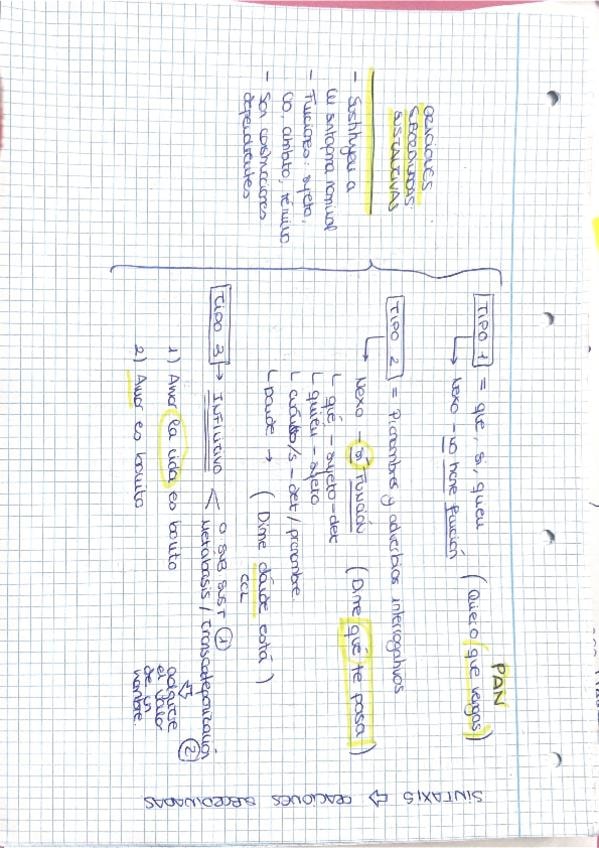 SINTAXIS ⇨ ORACIONES SUBORDINADAS
ORACIONES
SUBORDINADAS
SUSTANTIVAS
- Sustituyen a
un sintagma nominal
- Funciones: sujeto,
CD, atributo, término
- Son construcciones
dependientes
PAN
TIPO 1 = que, si, quien
Nexo - no tiene función (Quiero (que vengas)
TIPO 2 = Pronombres y adverbios interrogativos
Nexo - sí función (Dime qué te pasa)
qué - sujeto - det
quién - sujeto
cuánto/s - det / pronombre.
Dónde → (Dime dónde está)
CCL
TIPO 3 → INFINITIVO < O SUB SUST 1
Metábasis / transcategorización 2
adquiere
el valor
de un
nombre.
1) Amar la vida es bonito
2) Amar es bonito